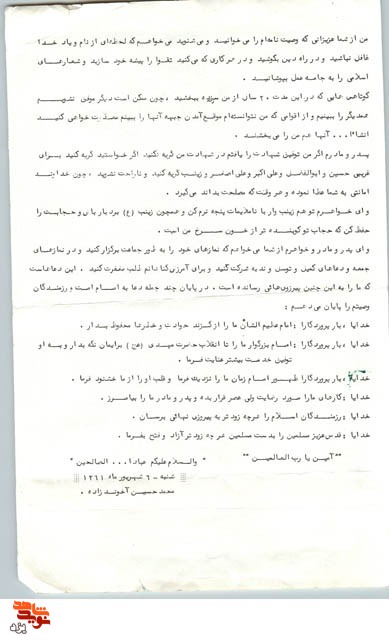 من از شما عزیزانی که وصیت نامه‌ام را می‌خوانید و می‌شنوید می‌خواهم که لحظه‌ای از نام و یاد خدا
غافل نباشید و در راه دین بکوشید و در هر کاری که می‌کنید تقوا را پیشه خود سازید و شعارهای
اسلامی را به جامه عمل بپوشانید.
کوتاهی هایی که در این مدت ۲۰ سال از من سرزده ببخشید، چون ممکن است دیگر موفق نشویم
همدیگر را ببینیم و از اقوامی که من نتوانسته‌ام موقع آمدن جبهه آنها را ببینم معذرت خواهی کنید
انشاء ا... آنها هم من را می‌بخشند.
پدر و مادرم اگر من توفیق شهادت را یافتم در شهادت من گریه نکنید. اگر خواستید گریه کنید برای
غریبی حسین و ابوالفضل و علی اکبر و علی اصغر و زینب گریه کنید و ناراحت نشوید، چون خداوند
امانتی به شما عطا نموده و هر وقت که مصلحت بداند می‌گیرد.
و ای خواهرم تو هم زینب وار با ناملایمات پنجه نرم کن و همچون زینب (ع) بردبار باش و حجابت را
حفظ کن که حجاب تو کوبنده تر از خون سرخ من است.
و ای پدر و مادر و خواهرم از شما می‌خواهم که نمازهای خود را به طور جماعت برگزار کنید و در نمازهای
جمعه و دعاهای کمیل و توسل و ندبه شرکت کنید و برای آمرزش گناهانم طلب مغفرت کنید. این دعاهاست
که ما را به این چنین پیروزیهائی رسانده است. در پایان چند جمله دعا به امام امت و رزمندگان
وصیتم را پایان می‌دهم:
خدایا، بار پروردگارا: امام عظیم الشأن ما را از گزند حوادث و خطرها محفوظ بدار.
خدایا، بار پروردگارا: امام بزرگوار ما را تا انقلاب حضرت مهدی (عج) برایمان نگه بدار و به او
توفیق خدمت بیشتر عنایت فرما.
خدایا، بار پروردگارا ظهور امام زمان ما را نزدیک فرما و قلب او را از ما خشنود فرما.
خدایا: کارهای ما را مورد رضایت ولی عصر قرار بده و پدر و مادر ما را بیامرز.
خدایا: رزمندگان اسلام را هرچه زودتر به پیروزی نهائی برسان.
خدایا: قدس عزیز مسلمین را بدست مسلمین هرچه زودتر آزاد و فتح بفرما.
"" آمین یا رب العالمین "" " والسلام علیکم عبادا... الصالحین "
شنبه - ۶ شهریور ماه ۱۳۶۱
محمد حسین آخوند زاده.
نوید شاهد
یزد